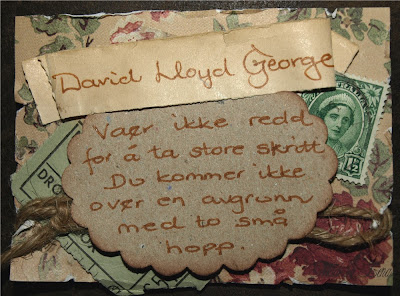 David Lloyd George
Vær ikke redd
for å ta store skritt.
Du kommer ikke
over en avgrunn
med to små
hopp.
1½